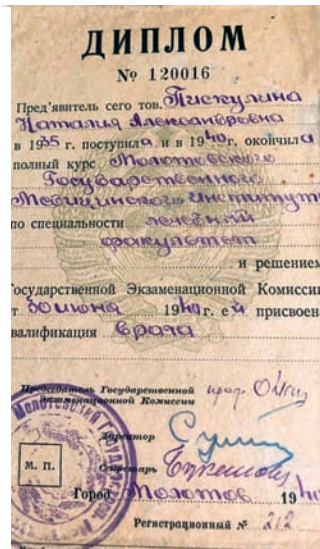 ДИПЛОМ
№ 120016
Пред'явитель сего тов. Пискулина
Наталия Александровна
в 1935 г. поступила и в 1940 г. окончила
полный курс Молотовского
Государственного
Медицинского Института
по специальности лечебный
факультет
и решением
Государственной Экзаменационной Комиссии
от 30 июня 1940 г. ей присвоен
валификация врача
Председатель Государственной
Экзаменационной Комиссии проф.
Директор
Секретарь
М. П.
Город Молотов 1940
Регистрационный № 212